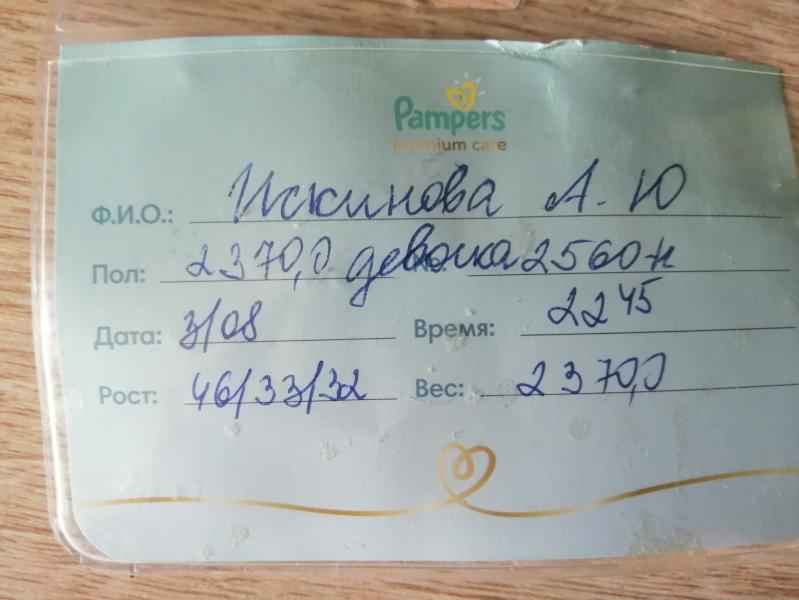 Pampers
premium care
Ф.И.О.: Искинова А. Ю
Пол: 2370,0 девочка №: 2560н
Дата: 3/08 Время: 22 45
Рост: 46/33/32 Вес: 2370,0